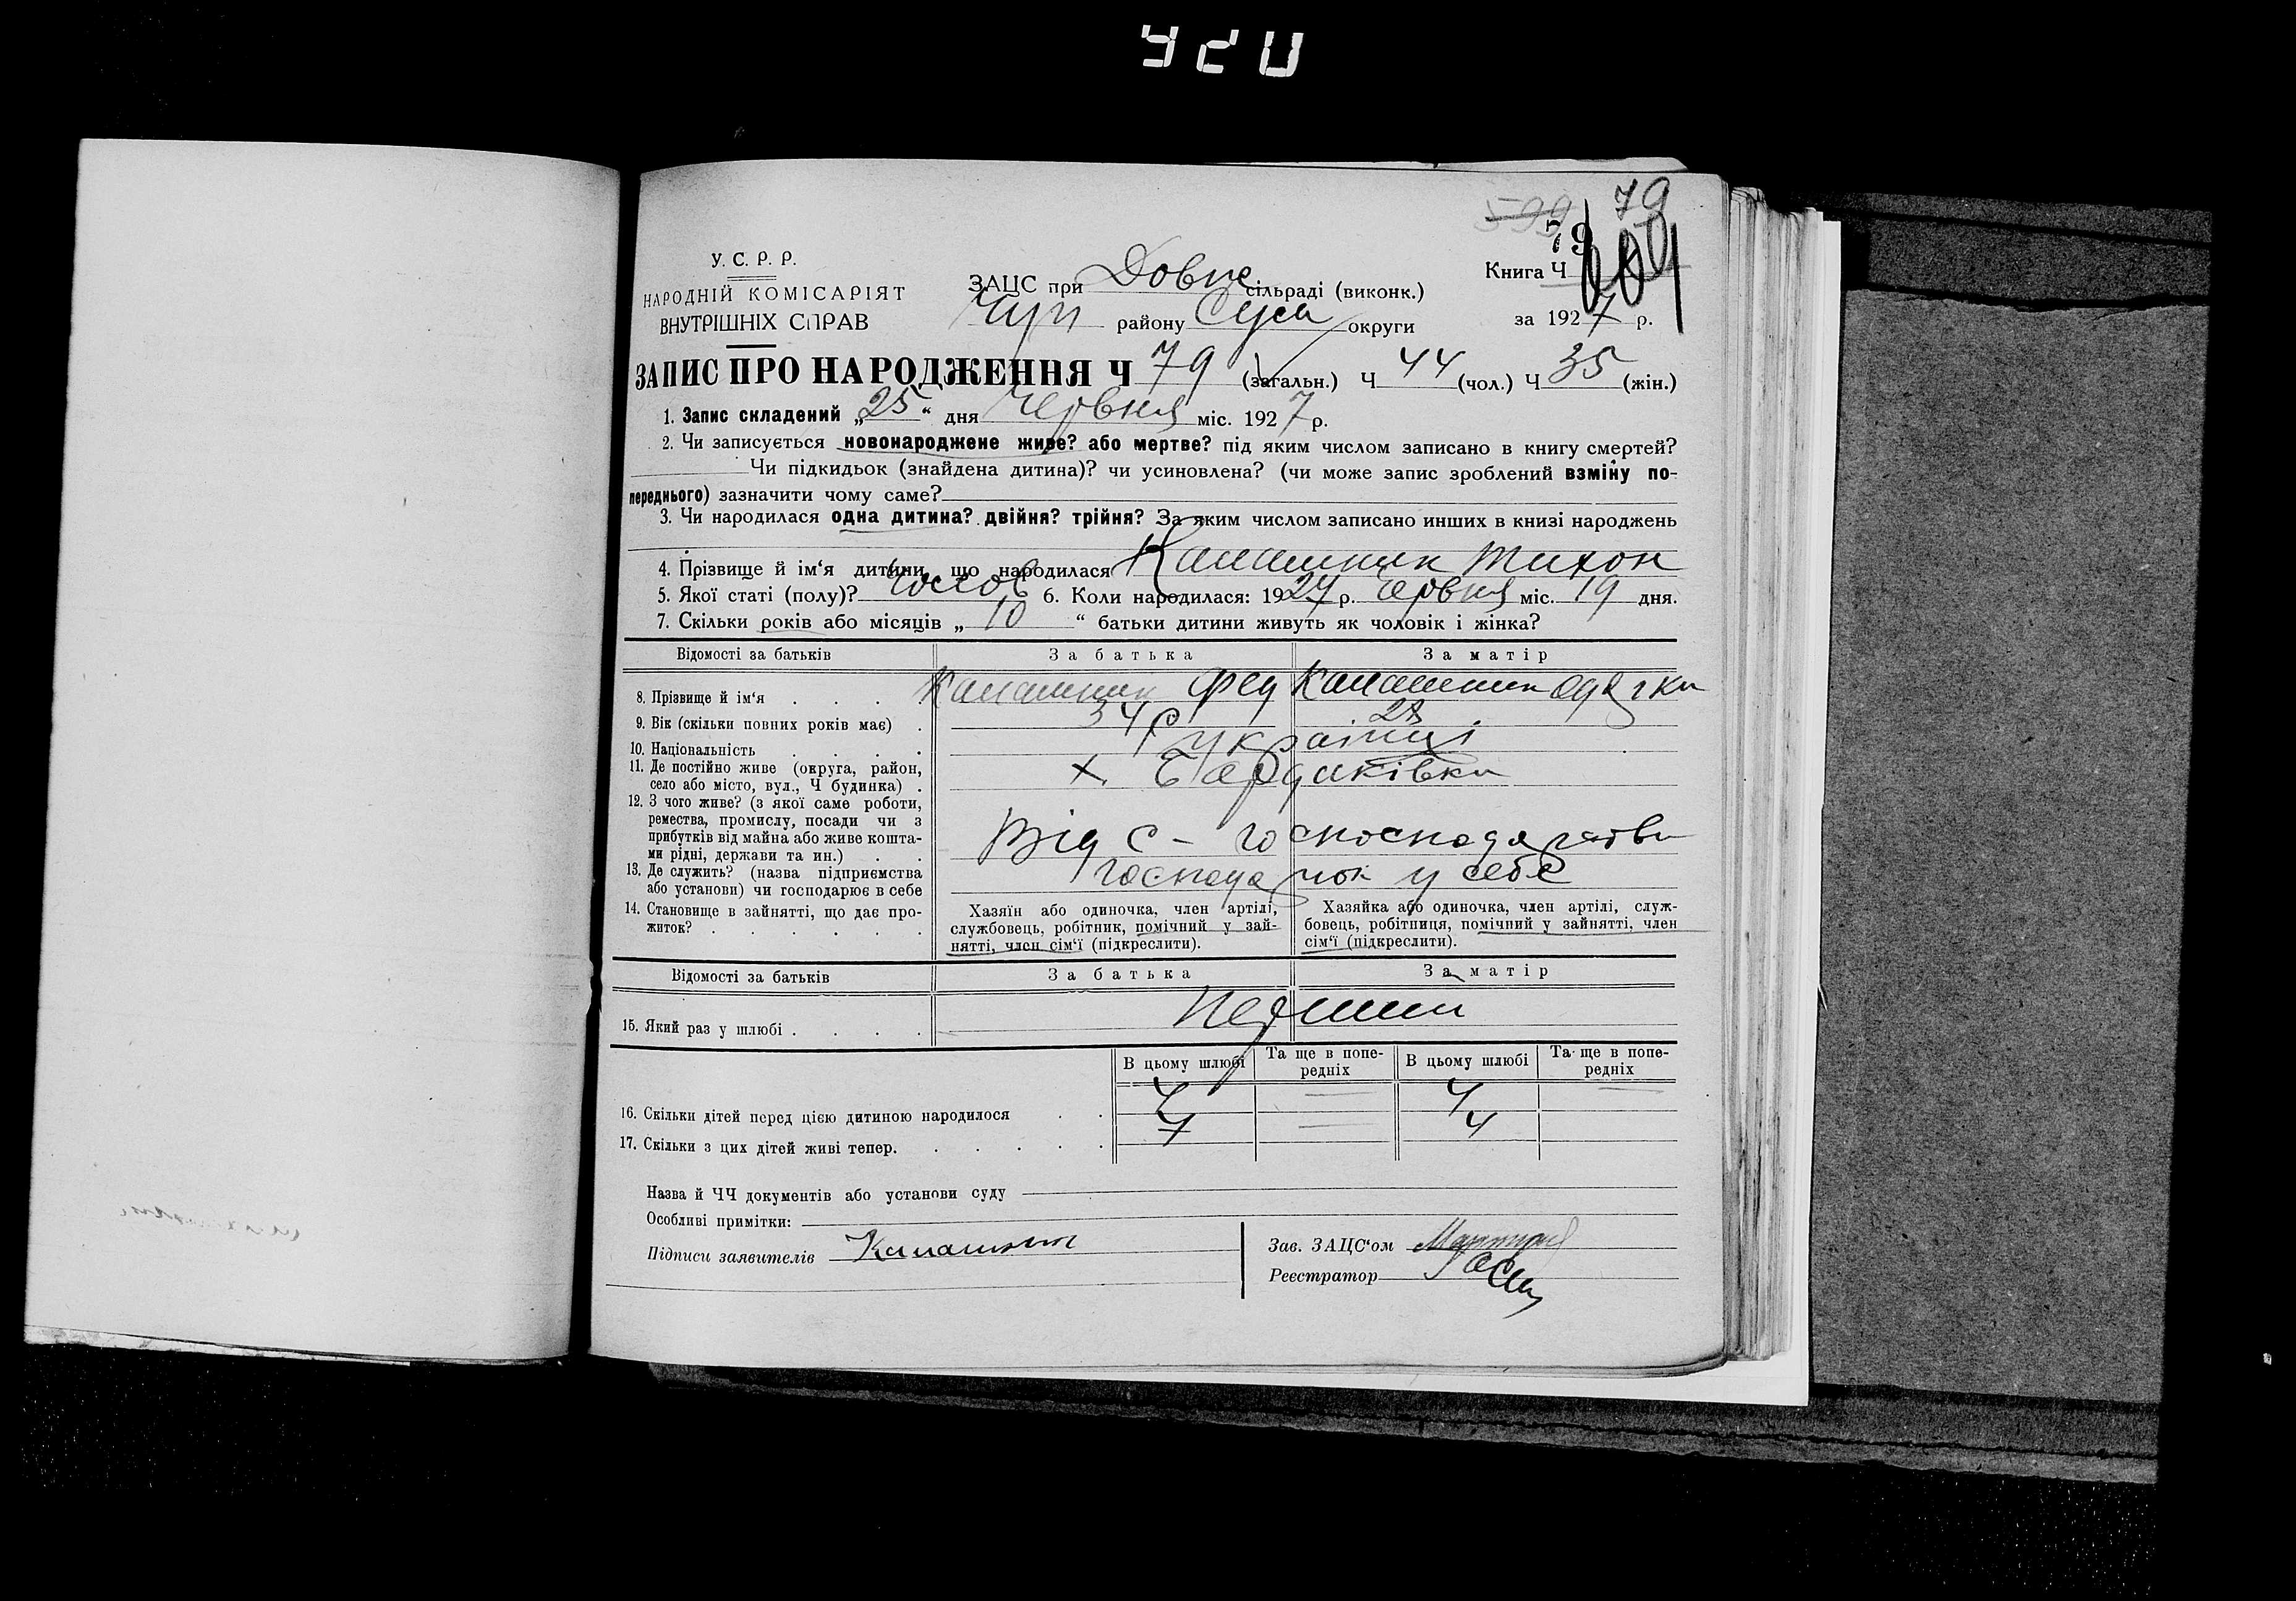 420
599 79
79
У. С. Р. Р.
НАРОДНІЙ КОМІСАРІЯТ
ВНУТРІШНІХ СПРАВ
ЗАЦС при Довж сільраді (виконк.)
Чуп району Сум округи
Книга Ч 601
за 1927 р.
ЗАПИС ПРО НАРОДЖЕННЯ Ч 79 (загальн.) Ч 44 (чол.) Ч 35 (жін.)
1. Запис складений „25“ дня Червня міс. 1927 р.
2. Чи записується новонароджене живе? або мертве? під яким числом записано в книгу смертей?
Чи підкидьок (знайдена дитина)? чи усиновлена? (чи може запис зроблений взміну по-
переднього) зазначити чому саме?
3. Чи народилася одна дитина? двійня? трійня? За яким числом записано инших в книзі народжень
4. Прізвище й ім‘я дитини, що народилася Калашник Тихон
5. Якої статі (полу)? чолов 6. Коли народилася: 1927 р. Червня міс. 19 дня.
7. Скільки років або місяців „ 10 “ батьки дитини живуть як чоловік і жінка?
Відомості за батьків За батька За матір
8. Прізвище й ім‘я . . . Калашник Фед Калашник Одарка
9. Вік (скільки повних років має) . 34 р 28
10. Національність . . . . Українці
11. Де постійно живе (округа, район,
село або місто, вул., Ч будинка) . х. Бардаківка
12. З чого живе? (з якої саме роботи,
ремества, промислу, посади чи з
прибутків від майна або живе кошта-
ми рідні, держави та ин.) . . Від с - госпосподарства
13. Де служить? (назва підприємства
або установи) чи господарює в себе у себе
14. Становище в зайнятті, що дає про-
житок? . . . . . .
Хазяїн або одиночка, член артілі,
службовець, робітник, помічний у зай-
нятті, член сім‘ї (підкреслити).
Хазяйка або одиночка, член артілі, служ-
бовець, робітниця, помічний у зайнятті, член
сім‘ї (підкреслити).
Відомості за батьків За батька За матір
15. Який раз у шлюбі . . . . Перший
В цьому шлюбі Та ще в попе-
редніх В цьому шлюбі Та ще в попе-
редніх
16. Скільки дітей перед цією дитиною народилося . . 4 4
17. Скільки з цих дітей живі тепер. . . . . . 4 4
Назва й ЧЧ документів або установи суду
Особливі примітки:
Підписи заявителів Калашник
Зав. ЗАЦС‘ом
Реєстратор